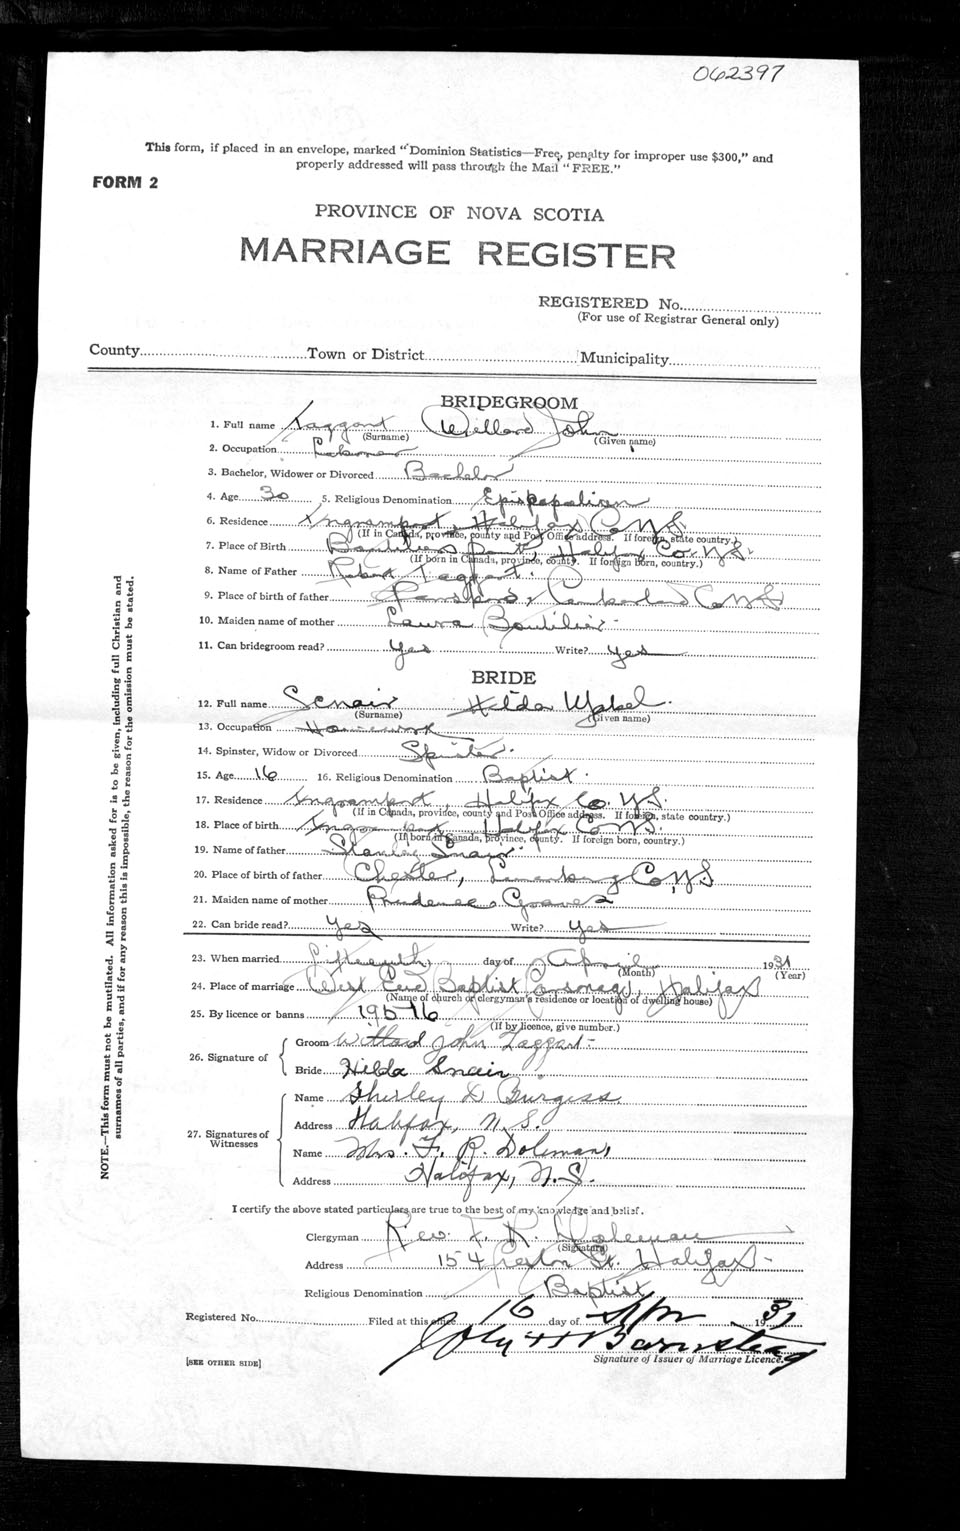 062397
This form, if placed in an envelope, marked "Dominion Statistics—Free, penalty for improper use $300," and
properly addressed will pass through the Mail "FREE."
FORM 2
PROVINCE OF NOVA SCOTIA
MARRIAGE REGISTER
REGISTERED No.
(For use of Registrar General only)
County Town or District Municipality
BRIDEGROOM
1. Full name Taggart Willard John
(Surname) (Given name)
2. Occupation
3. Bachelor, Widower or Divorced Bachelor
4. Age 30 5. Religious Denomination Episkopalian
6. Residence Ingramport, Halifax Co NS.
(If in Canada, province, county and Post Office address. If foreign, state country.)
7. Place of Birth Boutiliers point, Halifax Co. N.S.
(If born in Canada, province, county. If foreign born, country.)
8. Name of Father Robert Taggart.
9. Place of birth of father Cumberland Co NS
10. Maiden name of mother Laura Boutilier
11. Can bridegroom read? Yes Write? yes
BRIDE
12. Full name Snair Hilda Mabel.
(Surname) (Given name)
13. Occupation Housework
14. Spinster, Widow or Divorced Spinster.
15. Age 16 16. Religious Denomination Baptist.
17. Residence Ingramport, Halifax Co. N.S.
(If in Canada, province, county and Post Office address. If foreign, state country.)
18. Place of birth Ingramport Halifax Co NS.
(If born in Canada, province, county. If foreign born, country.)
19. Name of father Snair.
20. Place of birth of father Chester, Lunenburg Co, NS
21. Maiden name of mother Prudence Graves
22. Can bride read? Yes Write? yes
23. When married Fifteenth day of April 1931
(Month) (Year)
24. Place of marriage West End Baptist Parsonage, Halifax
(Name of church or clergyman's residence or location of dwelling house)
25. By licence or banns 19576
(If by licence, give number.)
26. Signature of
Groom Willard John Taggart-
Bride Hilda Snair
27. Signatures of Witnesses
Name Shirley D Burgess.
Address Halifax, N.S.
Name Mrs. F. R. Doleman,
Address Halifax, N.S.
I certify the above stated particulars are true to the best of my knowledge and belief.
Clergyman Rev. F. R. Doleman
(Signature)
Address 154 St. Halifax-
Religious Denomination Baptist
Registered No. Filed at this office 16 day of Apr 1931
Signature of Issuer of Marriage Licence.
[SEE OTHER SIDE]
NOTE.—This form must not be mutilated. All information asked for is to be given, including full Christian and
surnames of all parties, and if for any reason this is impossible, the reason for the omission must be stated.